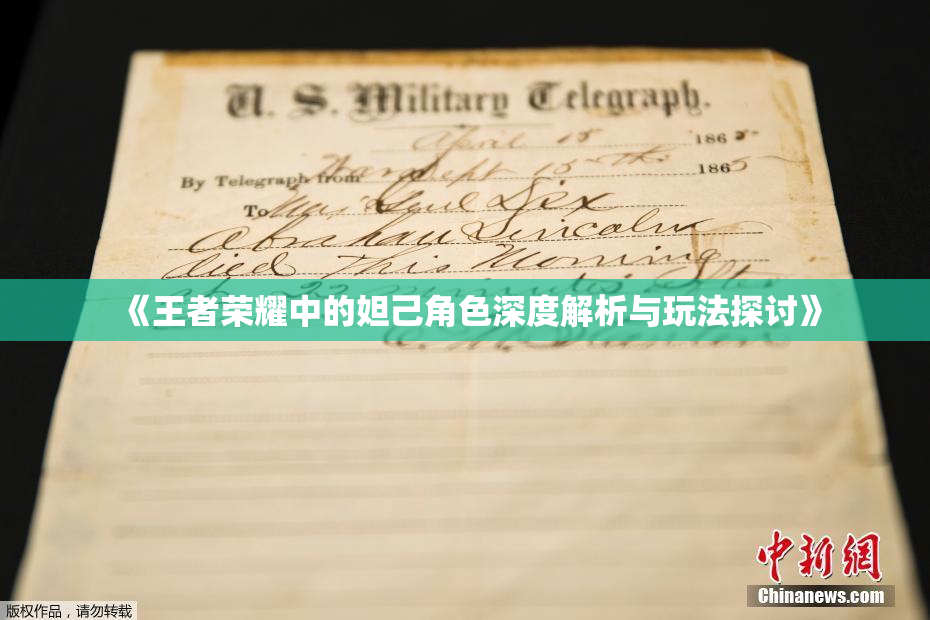 U. S. Military Telegraph.
April 15 1865
By Telegraph from Wash Sept 15th 1865
To Maj Genl Dix
Abraham Lincoln
died This Morning
at 22 minutes after
《王者荣耀中的妲己角色深度解析与玩法探讨》
E. M. Stanton
中新网
Chinanews.com
版权作品,请勿转载